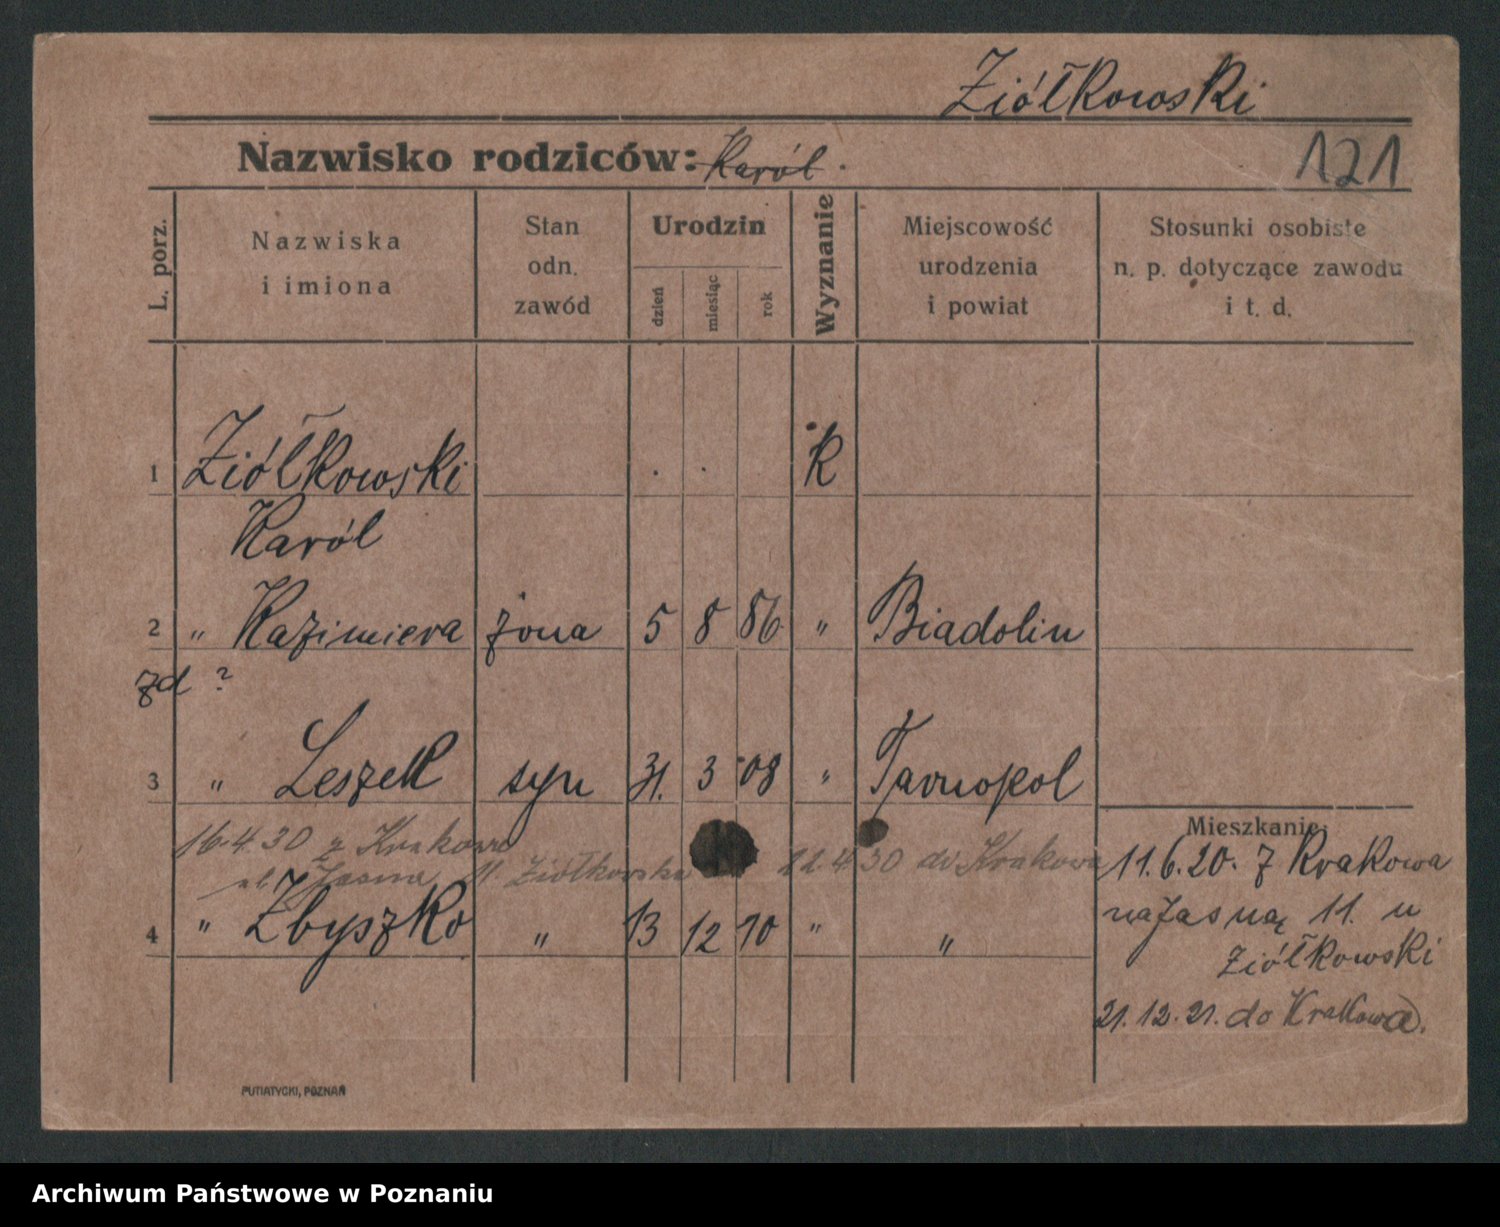 Ziółkowski
Nazwisko rodziców: Karól.
121
L. porz.
Nazwiska
i imiona
Stan
odn.
zawód
Urodzin
dzień
miesiąc
rok
Wyznanie
Miejscowość
urodzenia
i powiat
Stosunki osobiste
n. p. dotyczące zawodu
i t. d.
1 Ziółkowski K
Karól
2 " Kazimiera żona 5 8 86 " Biadolin
zd ?
3 " Leszek syn 31. 3 08 " Tarnopol
16.4.30 z Krakowa 22.4.30 do Krakowa
ul. Jasna 11 Ziółkowski
4 " Zbyszko " 13 12 10 " "
Mieszkanie:
11.6.20. z Krakowa
na Jasną 11. u
Ziółkowski
21.12.21. do Krakowa.
PUTIATYCKI, POZNAŃ
Archiwum Państwowe w Poznaniu